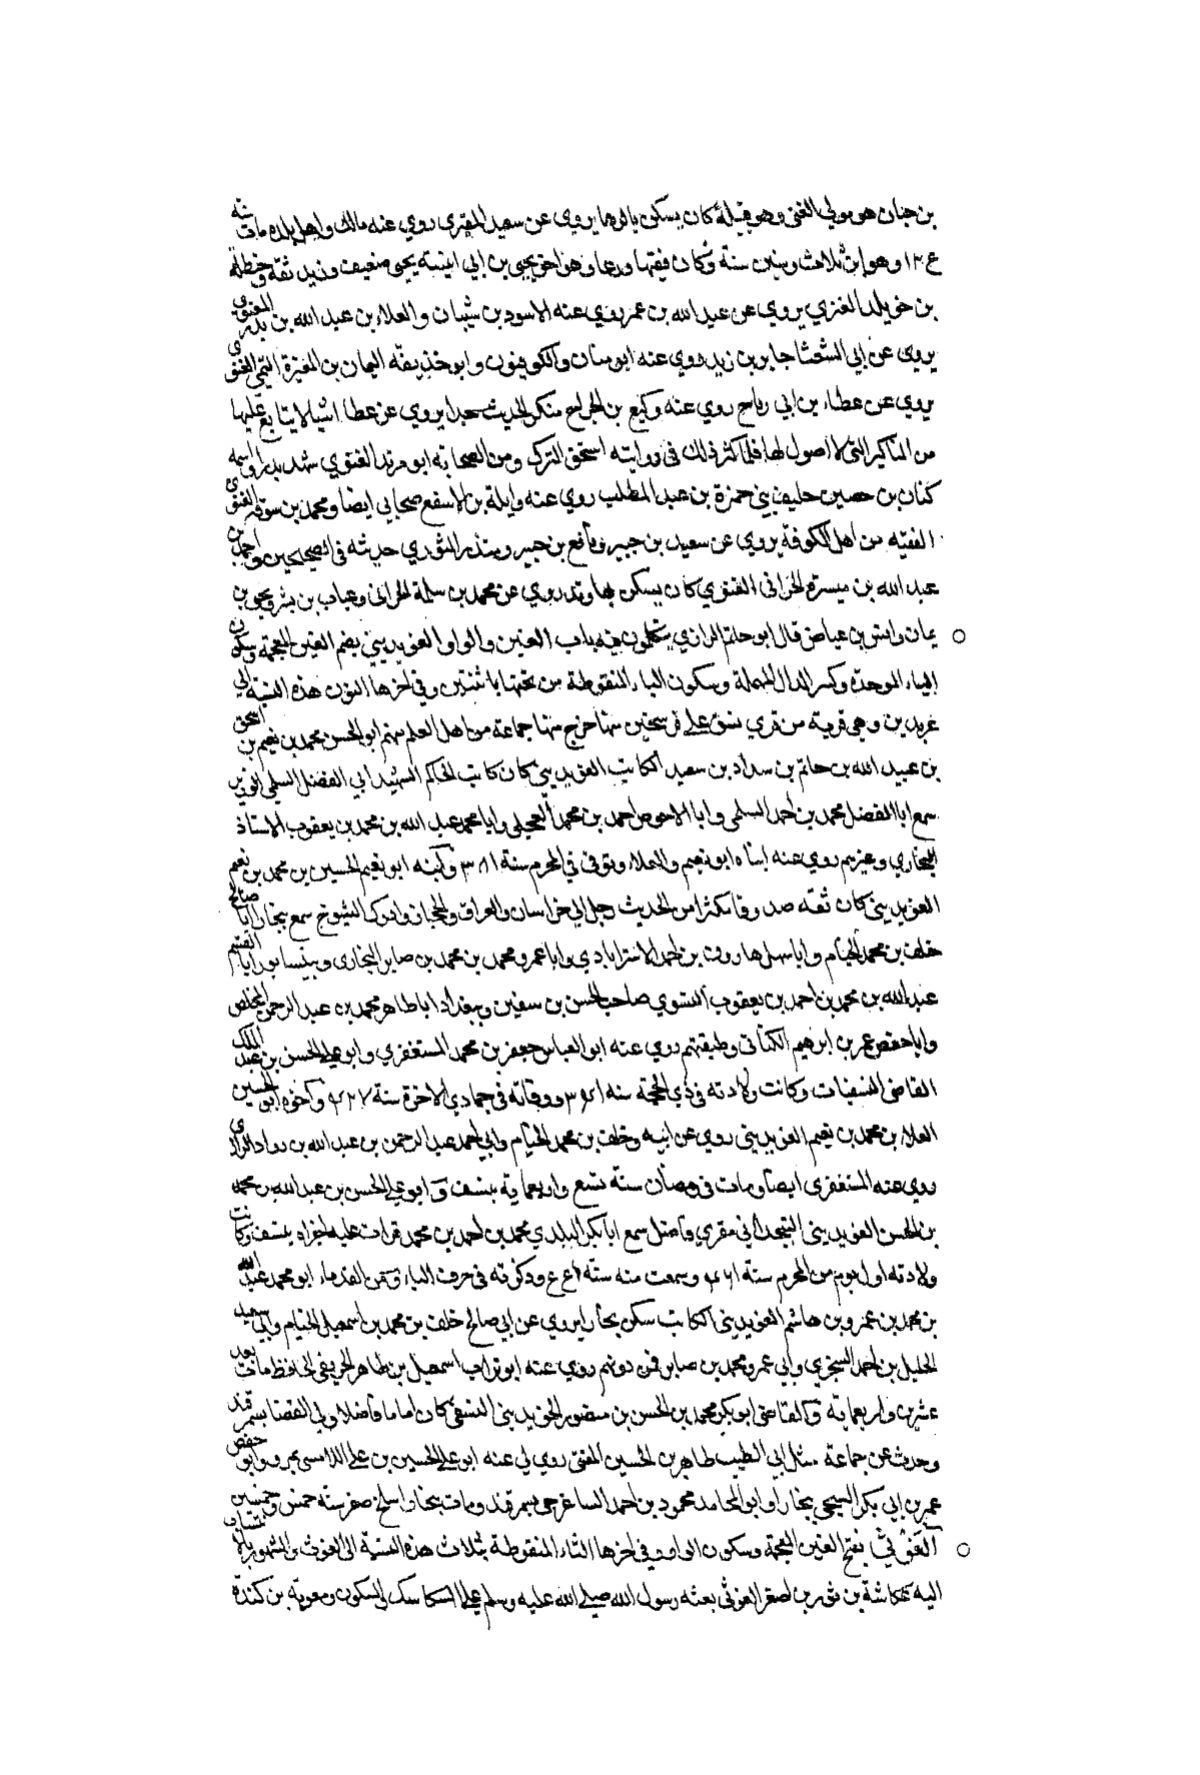 بن حبان هو مولى الغني وهو قبيلة كان يسكن بالرها يروي عن سعيد المقبري روي عنه مالك واهل بلده مات سنة
١٢٤ وهو ابن ثلاث وستين سنة وكان فقيها ورعا وهو اخو يحيى بن ابي انيسة يحيى ضعيف وزيد ثقة وحنظلة
بن خويلد الغنزي يروي عن عبد الله بن عمر روي عنه الاسود بن شيبان والعلاء بن عبد الله بن بدر الغنوي
يروي عن ابي الشعثا جابر بن زيد روي عنه ابو سنان والكوفيون وابو حذيفة اليمان بن المغيرة التيمي الغنوي
يروي عن عطاء بن ابي رباح روي عنه وكيع بن الجراح منكر الحديث جدا يروي عن عطا اشيا لا يتابع عليها
من المناكير التي لا اصول لها فلما كثر ذلك في روايته استحق الترك ومن الصحابه ابو مرثد الغنوي شهد بدرا واسمه
كنان بن حصين حليف بني حمزة بن عبد المطلب روي عنه واثلة بن الاسقع صحابي ايضا ومحمد بن سوقة الغنوي
الفقيه من اهل الكوفة يروي عن سعيد بن جبير ونافع بن جبير ومنذر الثوري حديثه في الصحيحين واحمد بن
عبد الله بن ميسرة الحراني الغنوي كان يسكن بها وقد روي عن محمد بن سلمة الحراني وعتاب بن بشر ويحيى بن
يمان وانس بن عياض قال ابو حاتم الرازي يتكلمون فيه باب الغين والواو الغوبديني بضم الغين المعجمة وسكون
الباء الموحدة وكسر الدال المهملة وسكون الياء المنقوطة من تحتها باثنتين وفي اخرها النون هذه النسبة الى
غوبدين وهي قرية من قري نسف على فرسخين منها خرج منها جماعة من اهل العلم منهم ابو الحسن محمد بن نعيم بن اسحق
بن عبيد الله بن حاتم بن سداد بن سعيد الكاتب الغوبديني كان كاتب الحاكم الشهيد ابي الفضل السلمي الوزير
سمع ابا الفضل محمد بن احمد السلمي وابا الاحوص احمد بن محمد العجيلي وابا محمد عبد الله بن محمد بن يعقوب الاستاذ
البخاري وغيرهم روي عنه ابناه ابو نعيم والعلاء وتوفي في المحرم سنة ٣٨١ وابنه ابو نعيم الحسين بن محمد بن نعيم
الغوبديني كان ثقة صدوقا مكثرا من الحديث رحل الى خراسان والعراق والحجاز وادرك الشيوخ سمع ببخارا ابا صالح
خلف بن محمد الخيام وابا سهل هارون بن احمد الاستراباذي وابا عمرو محمد بن محمد بن صابر البخاري وبنيسابور ابا القسم
عبد الله بن محمد بن احمد بن يعقوب النسوي صاحب الحسن بن سفين وببغداد ابا طاهر محمد بن عبد الرحمن المخلص
وابا حفص عمر بن ابرهيم الكتاني وطبقتهم روي عنه ابو العباس جعفر بن محمد المستغفري وابو علي الحسن بن عبد الملك
القاضي النسفيان وكانت ولادته في ذي الحجة سنه ووفاته في جمادي الاخرة سنة ٤٢٧ واخوه ابو الحسين
العلا بن محمد بن نعيم الغوبديني روي عن ابيه وخلف بن محمد الخيام وابي احمد عبد الرحمن بن عبد الله بن الرازي
روي عنه المستغفري ايضا ومات في رمضان سنة تسع واربعماية بنسف وابو علي الحسن بن عبد الله بن محمد
بن الحسن الغوبديني مقري فاضل سمع ابا بكر البلدي محمد بن احمد بن محمد قرات عليه اجزاء بنسف وكانت
ولادته اول يوم من المحرم سنة وسمعت منه سنة وذكرته في حرف الباء ومن القدماء ابو محمد عبد الله
بن محمد بن عمرو بن هاشم الغوبديني الكاتب سكن بخارا يروي عن ابي صالح خلف بن محمد بن اسمعيل الخيام وابي سعيد
الخليل بن احمد السجزي وابي عمرو محمد بن صابر فمن دونهم روي عنه ابو تراب اسمعيل بن طاهر الحافظ مات بعد
عشرين واربعماية والقاضي ابو بكر محمد بن الحسن بن منصور النسفي كان اماما فاضلا ولي القضا بسمرقند
وحدث عن جماعة مثل ابي الطيب طاهر بن الحسين المفتي روي لي عنه ابو علي الحسين بن علي اللامسي بمرو وابو حفص
عمر بن ابي بكر السبحي ببخارا وابو المحامد محمود بن احمد الساغرجي بسمرقند ومات ببخارا سلخ صفر سنة خمس وخمسين
الغوثي بفتح الغين المعجمة وسكون الواو وفي اخرها الثاء المنقوطة بثلاث هذه النسبة الى الغوث والمشهور بالانتساب
اليه عكاشة بن ثور بن اصغر الغوثي بعثه رسول الله صلى الله عليه وسلم على السكاسك والسكون ومعوية بن كندة